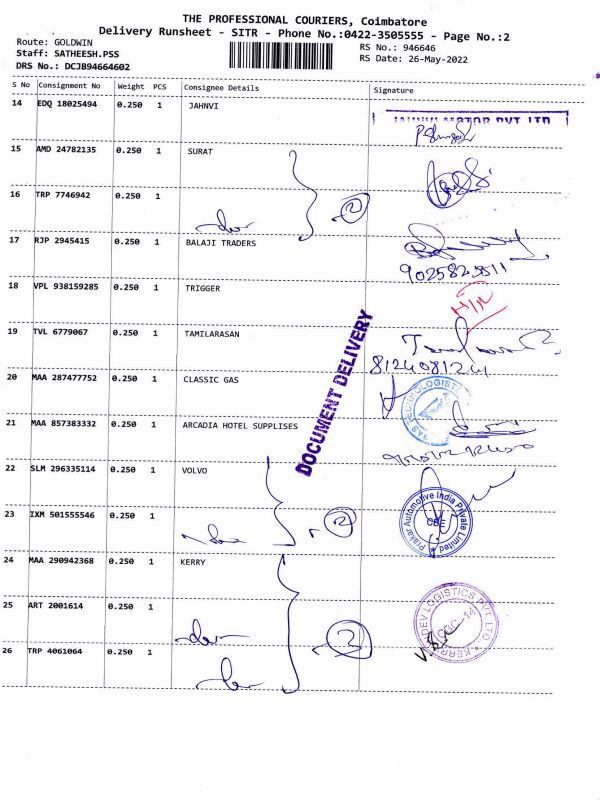 THE PROFESSIONAL COURIERS, Coimbatore
Delivery Runsheet - SITR - Phone No.:0422-3505555 - Page No.:2
Route: GOLDWIN
RS No.: 946646
Staff: SATHEESH.PSS
RS Date: 26-May-2022
DRS No.: DCJB94664602
S No Consignment No Weight PCS Consignee Details Signature
14 EDQ 18025494 0.250 1 JAHNVI
15 AMD 24782135 0.250 1 SURAT
16 TRP 7746942 0.250 1
2
17 RJP 2945415 0.250 1 BALAJI TRADERS
18 VPL 938159285 0.250 1 TRIGGER
19 TVL 6779067 0.250 1 TAMILARASAN
8124081241
DOCUMENT DELIVERY
20 MAA 287477752 0.250 1 CLASSIC GAS
21 MAA 857383332 0.250 1 ARCADIA HOTEL SUPPLISES
22 SLM 296335114 0.250 1 VOLVO
Prakar Automotive India Private Limited
CBE
23 IXM 501555546 0.250 1
2
24 MAA 290942368 0.250 1 KERRY
25 ART 2001614 0.250 1
26 TRP 4061064 0.250 1